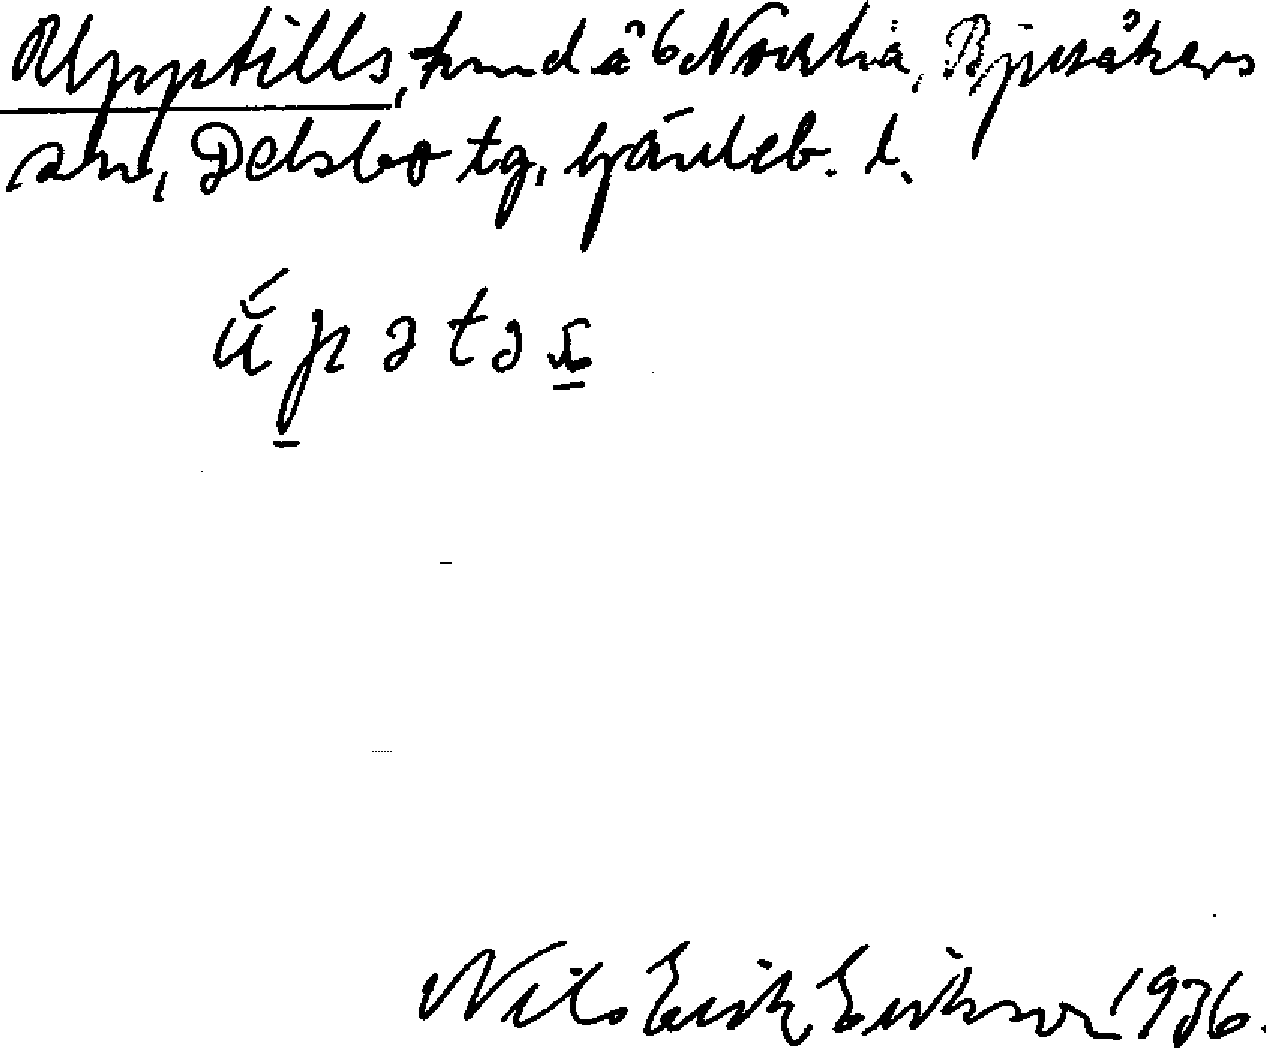 Upptills, hmd å 6 Norrhå, Bjuråkers
sn, Delsbo tg, Gävleb. l.
ú̆ p ə t ə s
Nils Erik Erikson 1936.